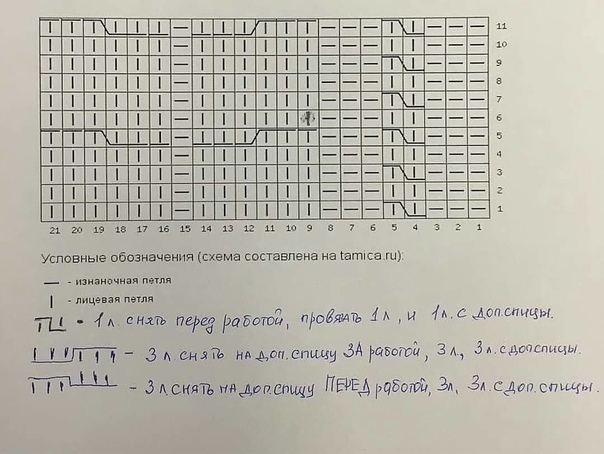 11
10
9
8
7
6
5
4
3
2
1
21 20 19 18 17 16 15 14 13 12 11 10 9 8 7 6 5 4 3 2 1
Условные обозначения (схема составлена на tamica.ru):
— - изнаночная петля
| - лицевая петля
- 1л. снять перед работой, провязать 1л, и 1л. с доп.спицы.
- 3л. снять на доп.спицу ЗА работой, 3л., 3л. с доп.спицы.
- 3л. снять на доп.спицу ПЕРЕД работой, 3л, 3л. с доп.спицы.